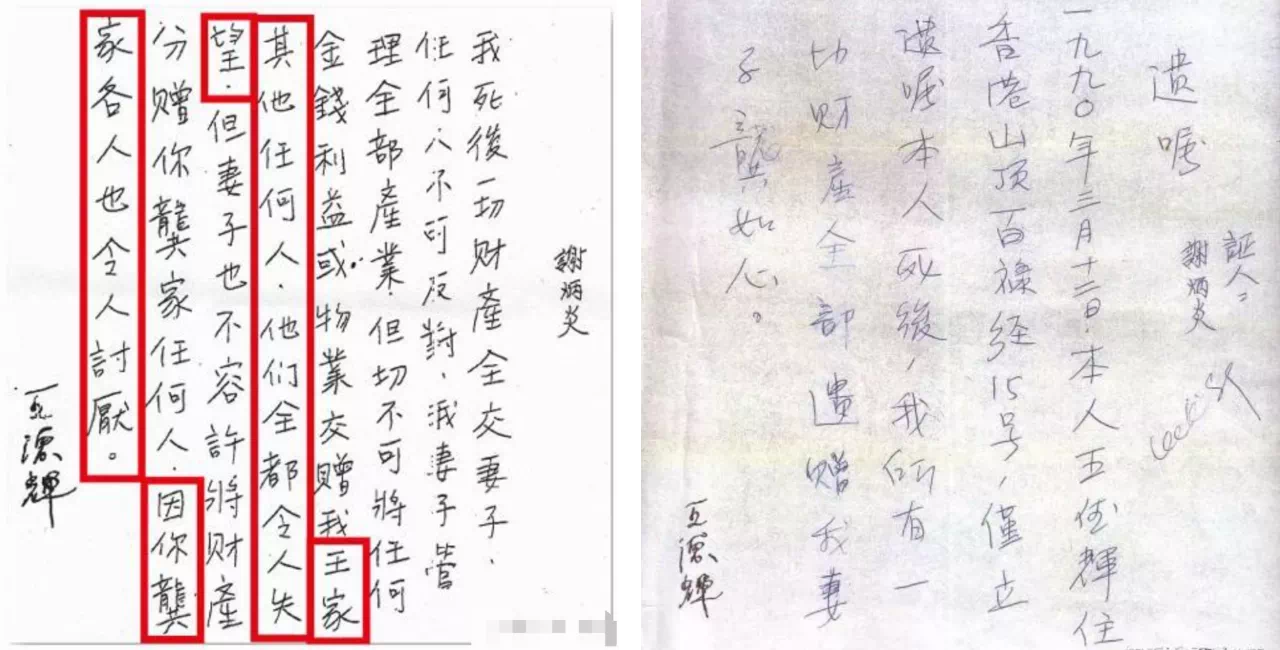 謝炳炎
我死後一切财產全交妻子、
任何人不可反對、我妻子管
理全部產業、但切不可將任何
金錢利益或物業交赠我王家
其他任何人、他们全都令人失
望、但妻子也不容許將财產
分赠你龔家任何人、因你龔
家各人也令人討厭。
王德輝
遗嘱
証人:
謝炳炎
一九九〇年三月十二日、本人王德輝住
香港山顶百禄径15号，僅立
遗嘱本人死後，我所有一
切财產全部遗赠我妻
子龔如心。
王德輝